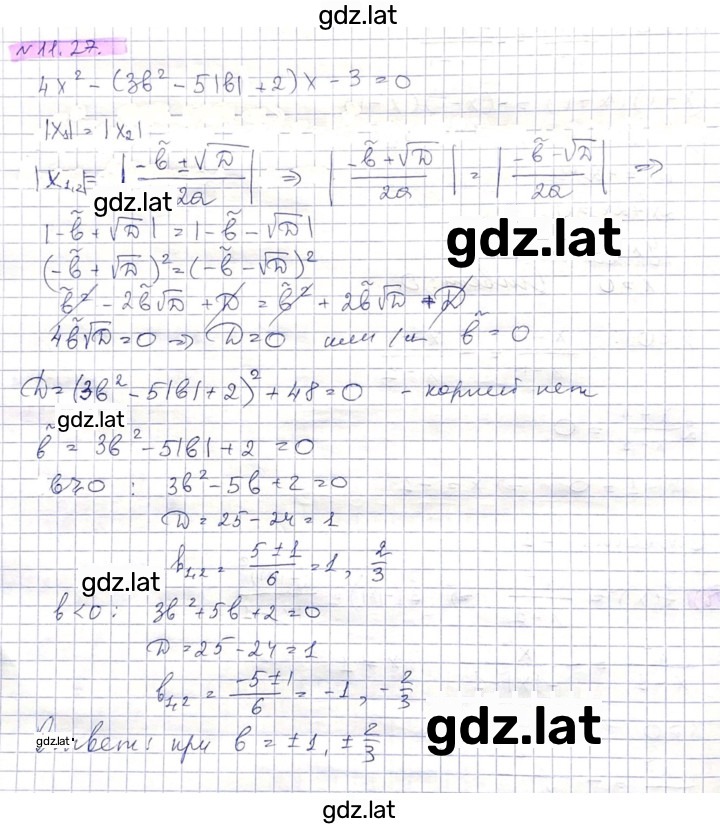 gdz.lat
№ 11.27.
4x² − (3b² − 5|b| + 2)x − 3 = 0
|x₁| = |x₂|
|x₁,₂| = |(−b̃ ± √D)/2a| ⇒ |(−b̃ + √D)/2a| = |(−b̃ − √D)/2a| ⇒
gdz.lat
|−b̃ + √D| = |−b̃ − √D|
gdz.lat
(−b̃ + √D)² = (−b̃ − √D)²
b̃² − 2b̃√D + D = b̃² + 2b̃√D + D
4b̃√D = 0 ⇒ D = 0 или/и b̃ = 0
D = (3b² − 5|b| + 2)² + 48 = 0 − корней нет
gdz.lat
b̃ = 3b² − 5|b| + 2 = 0
b ⩾ 0 : 3b² − 5b + 2 = 0
D = 25 − 24 = 1
b₁,₂ = (5 ± 1)/6 = 1, 2/3
gdz.lat
b < 0 : 3b² + 5b + 2 = 0
D = 25 − 24 = 1
b₁,₂ = (−5 ± 1)/6 = −1, −2/3
Ответ: при b = ±1, ±2/3
gdz.lat
gdz.lat
gdz.lat